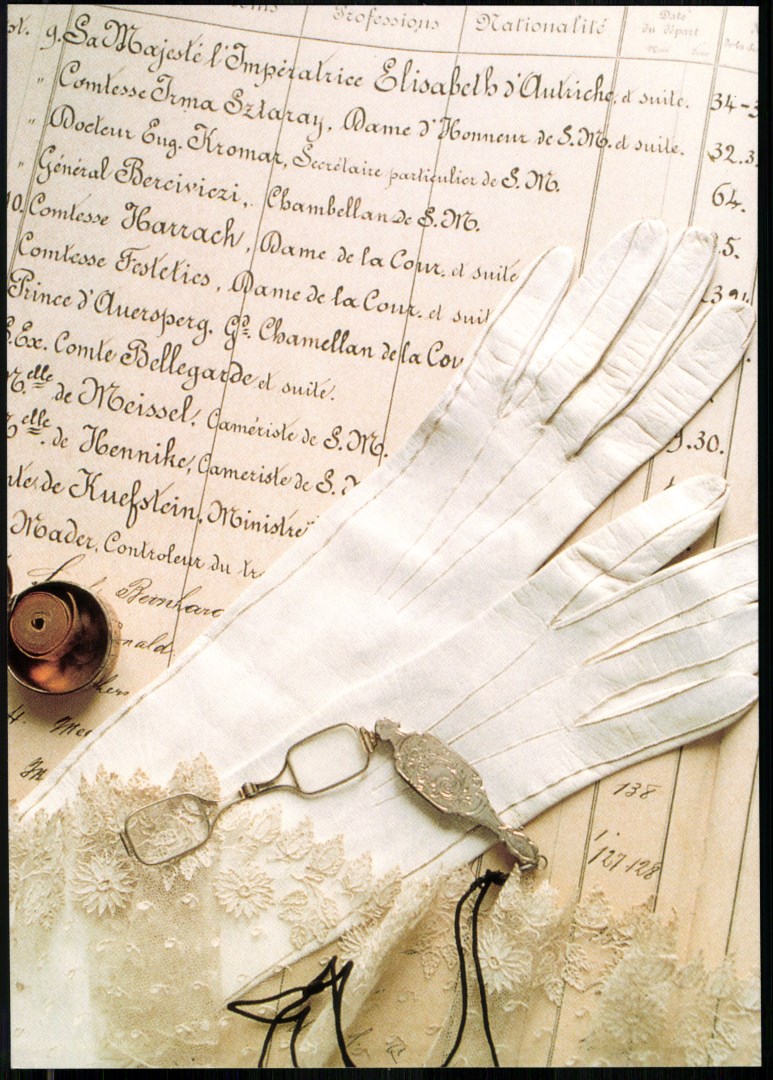 Professions Nationalité Date du départ
9. Sa Majesté l'Impératrice Elisabeth d'Autriche, et suite. 34-3
" Comtesse Irma Sztaray, Dame d'Honneur de S.M. et suite. 32.3
" Docteur Eug. Kromar, Secrétaire particulier de S.M. 64.
" Général Berciviczi, Chambellan de S.M. 5.
10. Comtesse Harrach, Dame de la Cour, et suite
Comtesse Festetics, Dame de la Cour, et suit
Prince d'Auersperg, Gd. Chamellan de la Cou
S.Ex. Comte Bellegarde et suite.
Melle de Meissel, Camériste de S.M.
elle de Hennike, Cameriste de S. 9.30.
de Kuefstein, Ministre
Mader, Controleur du tr
Bernhard
nald
138
127-128